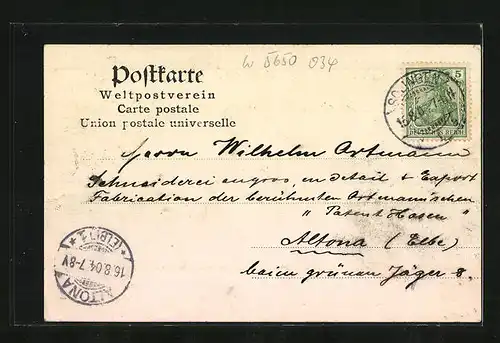 W 5650 034
Postkarte
Weltpostverein
Carte postale
Union postale universelle
5
DEUTSCHES REICH
SOLINGEN
Herrn Wilhelm Ortmann
Schneiderei engros en detail & Export
Fabrication der berühmten Ortmannischen
" Patent Hosen "
Altona (Elbe)
beim grünen Jäger 8.
ALTONA
16.8.04. 7-8V
*(ELBE) 1*